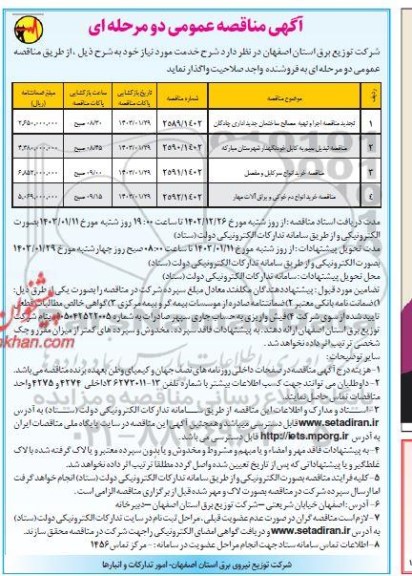 آگهی مناقصه عمومی دو مرحله ای
شرکت توزیع برق استان اصفهان در نظر دارد شرح خدمت مورد نیاز خود به شرح ذیل ، از طریق مناقصه
عمومی دو مرحله ای به فروشنده واجد صلاحیت واگذار نماید
ردیف موضوع مناقصه شماره مناقصه تاریخ بازگشایی پاکات مناقصه ساعت بازگشایی پاکات مناقصه مبلغ ضمانتنامه (ریال)
۱ تجدید مناقصه اجرا و تهیه مصالح ساختمان جدید اداری چادگان ۲۵۸۹/۱۴۰۲ ۱۴۰۳/۰۱/۲۹ ۰۸/۳۰ صبح
۲ مناقصه تبدیل سیم به کابل خودنگهدار شهرستان مبارکه ۲۵۹۰/۱۴۰۲ ۱۴۰۳/۰۱/۲۹ ۰۸/۴۵ صبح
۳ مناقصه خرید انواع سرکابل و مفصل ۲۵۹۱/۱۴۰۲ ۱۴۰۳/۰۱/۲۹ ۰۹/۰۰ صبح
۴ مناقصه خرید انواع دم خوکی و یراق آلات مهار ۲۵۹۲/۱۴۰۲ ۱۴۰۳/۰۱/۲۹ ۰۹/۱۵ صبح
مدت دریافت اسناد مناقصه : از روز شنبه مورخ ۱۴۰۲/۱۲/۲۶ تا ساعت ۱۹:۰۰ روز شنبه مورخ ۱۴۰۳/۰۱/۱۱ بصورت
الکترونیکی و از طریق سامانه تدارکات الکترونیکی دولت (ستاد)
مدت تحویل پیشنهادات : از روز شنبه مورخ ۱۴۰۳/۰۱/۱۱ تا ساعت ۰۸:۰۰ صبح روز چهارشنبه مورخ ۱۴۰۳/۰۱/۲۹
بصورت الکترونیکی و از طریق سامانه تدارکات الکترونیکی دولت (ستاد)
محل تحویل پیشنهادات : سامانه تدارکات الکترونیکی دولت (ستاد)
تضامین مورد قبول : پیشنهاددهندگان مکلفند معادل مبلغ سپرده شرکت در مناقصه را بصورت یکی از طرق ذیل:
۱) ضمانت نامه بانکی معتبر ۲) ضمانتنامه صادره از موسسات بیمه گر و بیمه مرکزی ۳) گواهی خالص مطالبات قطعی
تایید شده از سوی شرکت ۴) فیش واریزی به حساب جاری سپهر صادرات به شماره بنام شرکت
توزیع برق استان اصفهان ارائه دهند. به پیشنهادات فاقد سپرده ، مخدوش و سپرده های کمتر از میزان مقرر و چک
شخصی ترتیب اثر داده نخواهد شد.
سایر توضیحات:
۱- هزینه درج آگهی مناقصه در صفحات داخلی روزنامه های نصف جهان و کیمیای وطن بعهده برنده مناقصه می باشد.
۲- داوطلبان می توانند جهت کسب اطلاعات بیشتر با شماره تلفن داخلی ۴۲۷۴ و ۴۲۷۵ واحد
مناقصات تماس حاصل نمایند.
۳- اسناد و مدارک و اطلاعات این مناقصه از طریق سامانه تدارکات الکترونیکی دولت (ستاد) به آدرس
www.setadiran.ir قابل دسترسی میباشد و همچنین آگهی این مناقصه در سایت پایگاه ملی مناقصات ایران
به آدرس http://iets.mporg.ir قابل دسترسی می باشد.
۴- به پیشنهادات فاقد مهر و امضاء و یا مبهم و مشروط و مخدوش و یا بدون سپرده معتبر و یا لاک گرفته شده با لاک
غلط گیر و یا پیشنهاداتی که پس از تاریخ تعیین شده واصل گردد مطلقا ترتیب اثر داده نخواهد شد.
۵- کلیه فرایند مناقصه بصورت الکترونیکی از طریق سامانه تدارکات الکترونیکی دولت (ستاد) انجام خواهد گرفت
اما ارسال سپرده شرکت در مناقصه بصورت لاک و مهر شده قبل از برگزاری مناقصه الزامی است.
۶- آدرس : اصفهان خیابان شریعتی – شرکت توزیع برق استان اصفهان – دبیرخانه
۷- لازم است مناقصه گران در صورت عدم عضویت قبلی ، مراحل ثبت نام در سایت تدارکات الکترونیکی دولت (ستاد)
به آدرس www.setadiran.ir و دریافت گواهی امضای الکترونیکی را جهت شرکت در مناقصه محقق سازند.
۸- اطلاعات تماس سامانه ستاد جهت انجام مراحل عضویت در سامانه : - مرکز تماس ۱۴۵۶
شرکت توزیع نیروی برق استان اصفهان- امور تدارکات و انبارها